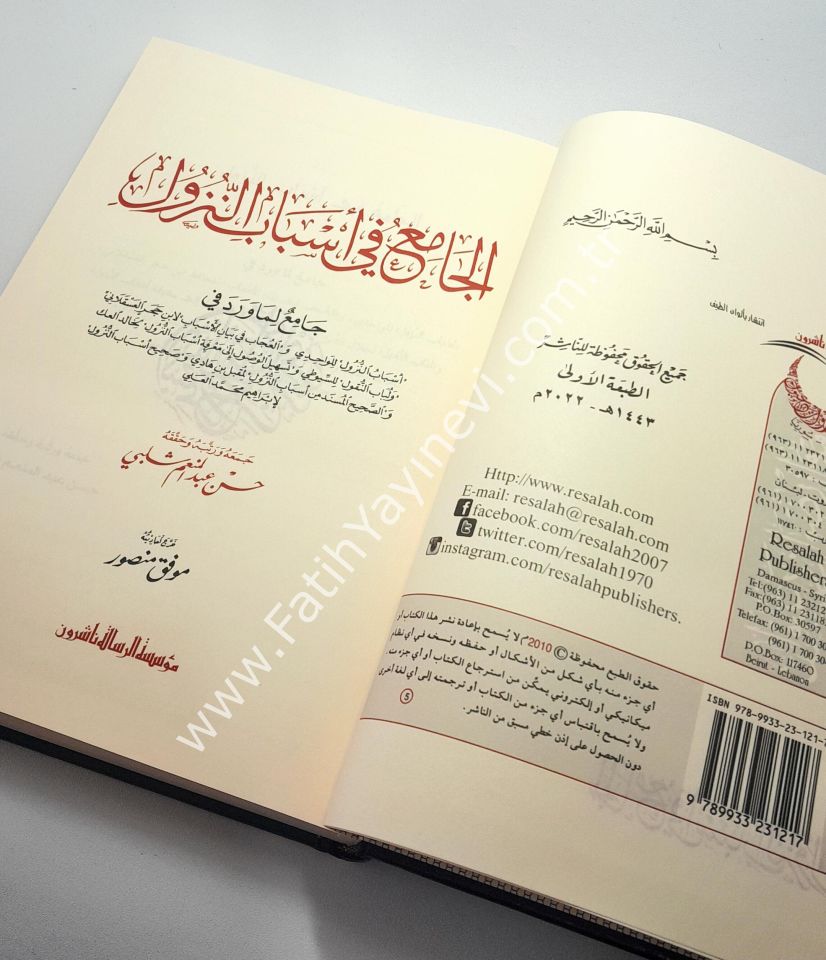 الجامع في أسباب النزول
جامع لما ورد في
أسباب النزول، للواحدي والعجاب في بيان الأسباب لابن حجر العسقلاني
ولباب النقول للسيوطي وتسهيل الوصول إلى معرفة أسباب النزول، لخالد العك
والصحيح المسند من أسباب النزول، لمقبل بن هادي وصحيح أسباب النزول
لإبراهيم محمد العلي
جمعه ورتبه وحققه
حسن عبد المنعم شلبي
خرج أحاديثه
موفق منصور
مؤسسة الرسالة ناشرون
بِسْمِ اللَّهِ الرَّحْمَنِ الرَّحِيمِ
انتشار بألوان الطيف
جميع الحقوق محفوظة للناشر
الطبعة الأولى
١٤٤٣هـ - ٢٠٢٢م
Http://www.resalah.com
E-mail: resalah@resalah.com
facebook.com/resalah2007
twitter.com/resalah1970
instagram.com/resalahpublishers.
حقوق الطبع محفوظة © 2010م لا يُسمح بإعادة نشر هذا الكتاب أو
أي جزء منه بأي شكل من الأشكال أو حفظه ونسخه في أي نظام
ميكانيكي أو إلكتروني يمكّن من استرجاع الكتاب أو أي جزء منه.
ولا يُسمح باقتباس أي جزء من الكتاب أو ترجمته إلى أي لغة أخرى
دون الحصول على إذن خطي مسبق من الناشر.
5
ناشرون
سوريا
بيروت - لبنان
Resalah
Publishers
Damascus - Syria
Tel:(963) 11 23212
Fax:(963) 11 23118
P.O.Box: 30597
Telefax: (961) 1 700 30
(961) 1 700 30
P.O.Box: 117460
Beirut - Lebanon
ISBN 978-9933-23-121-7
9 789933 231217
www.FatihYayinevi.com.tr